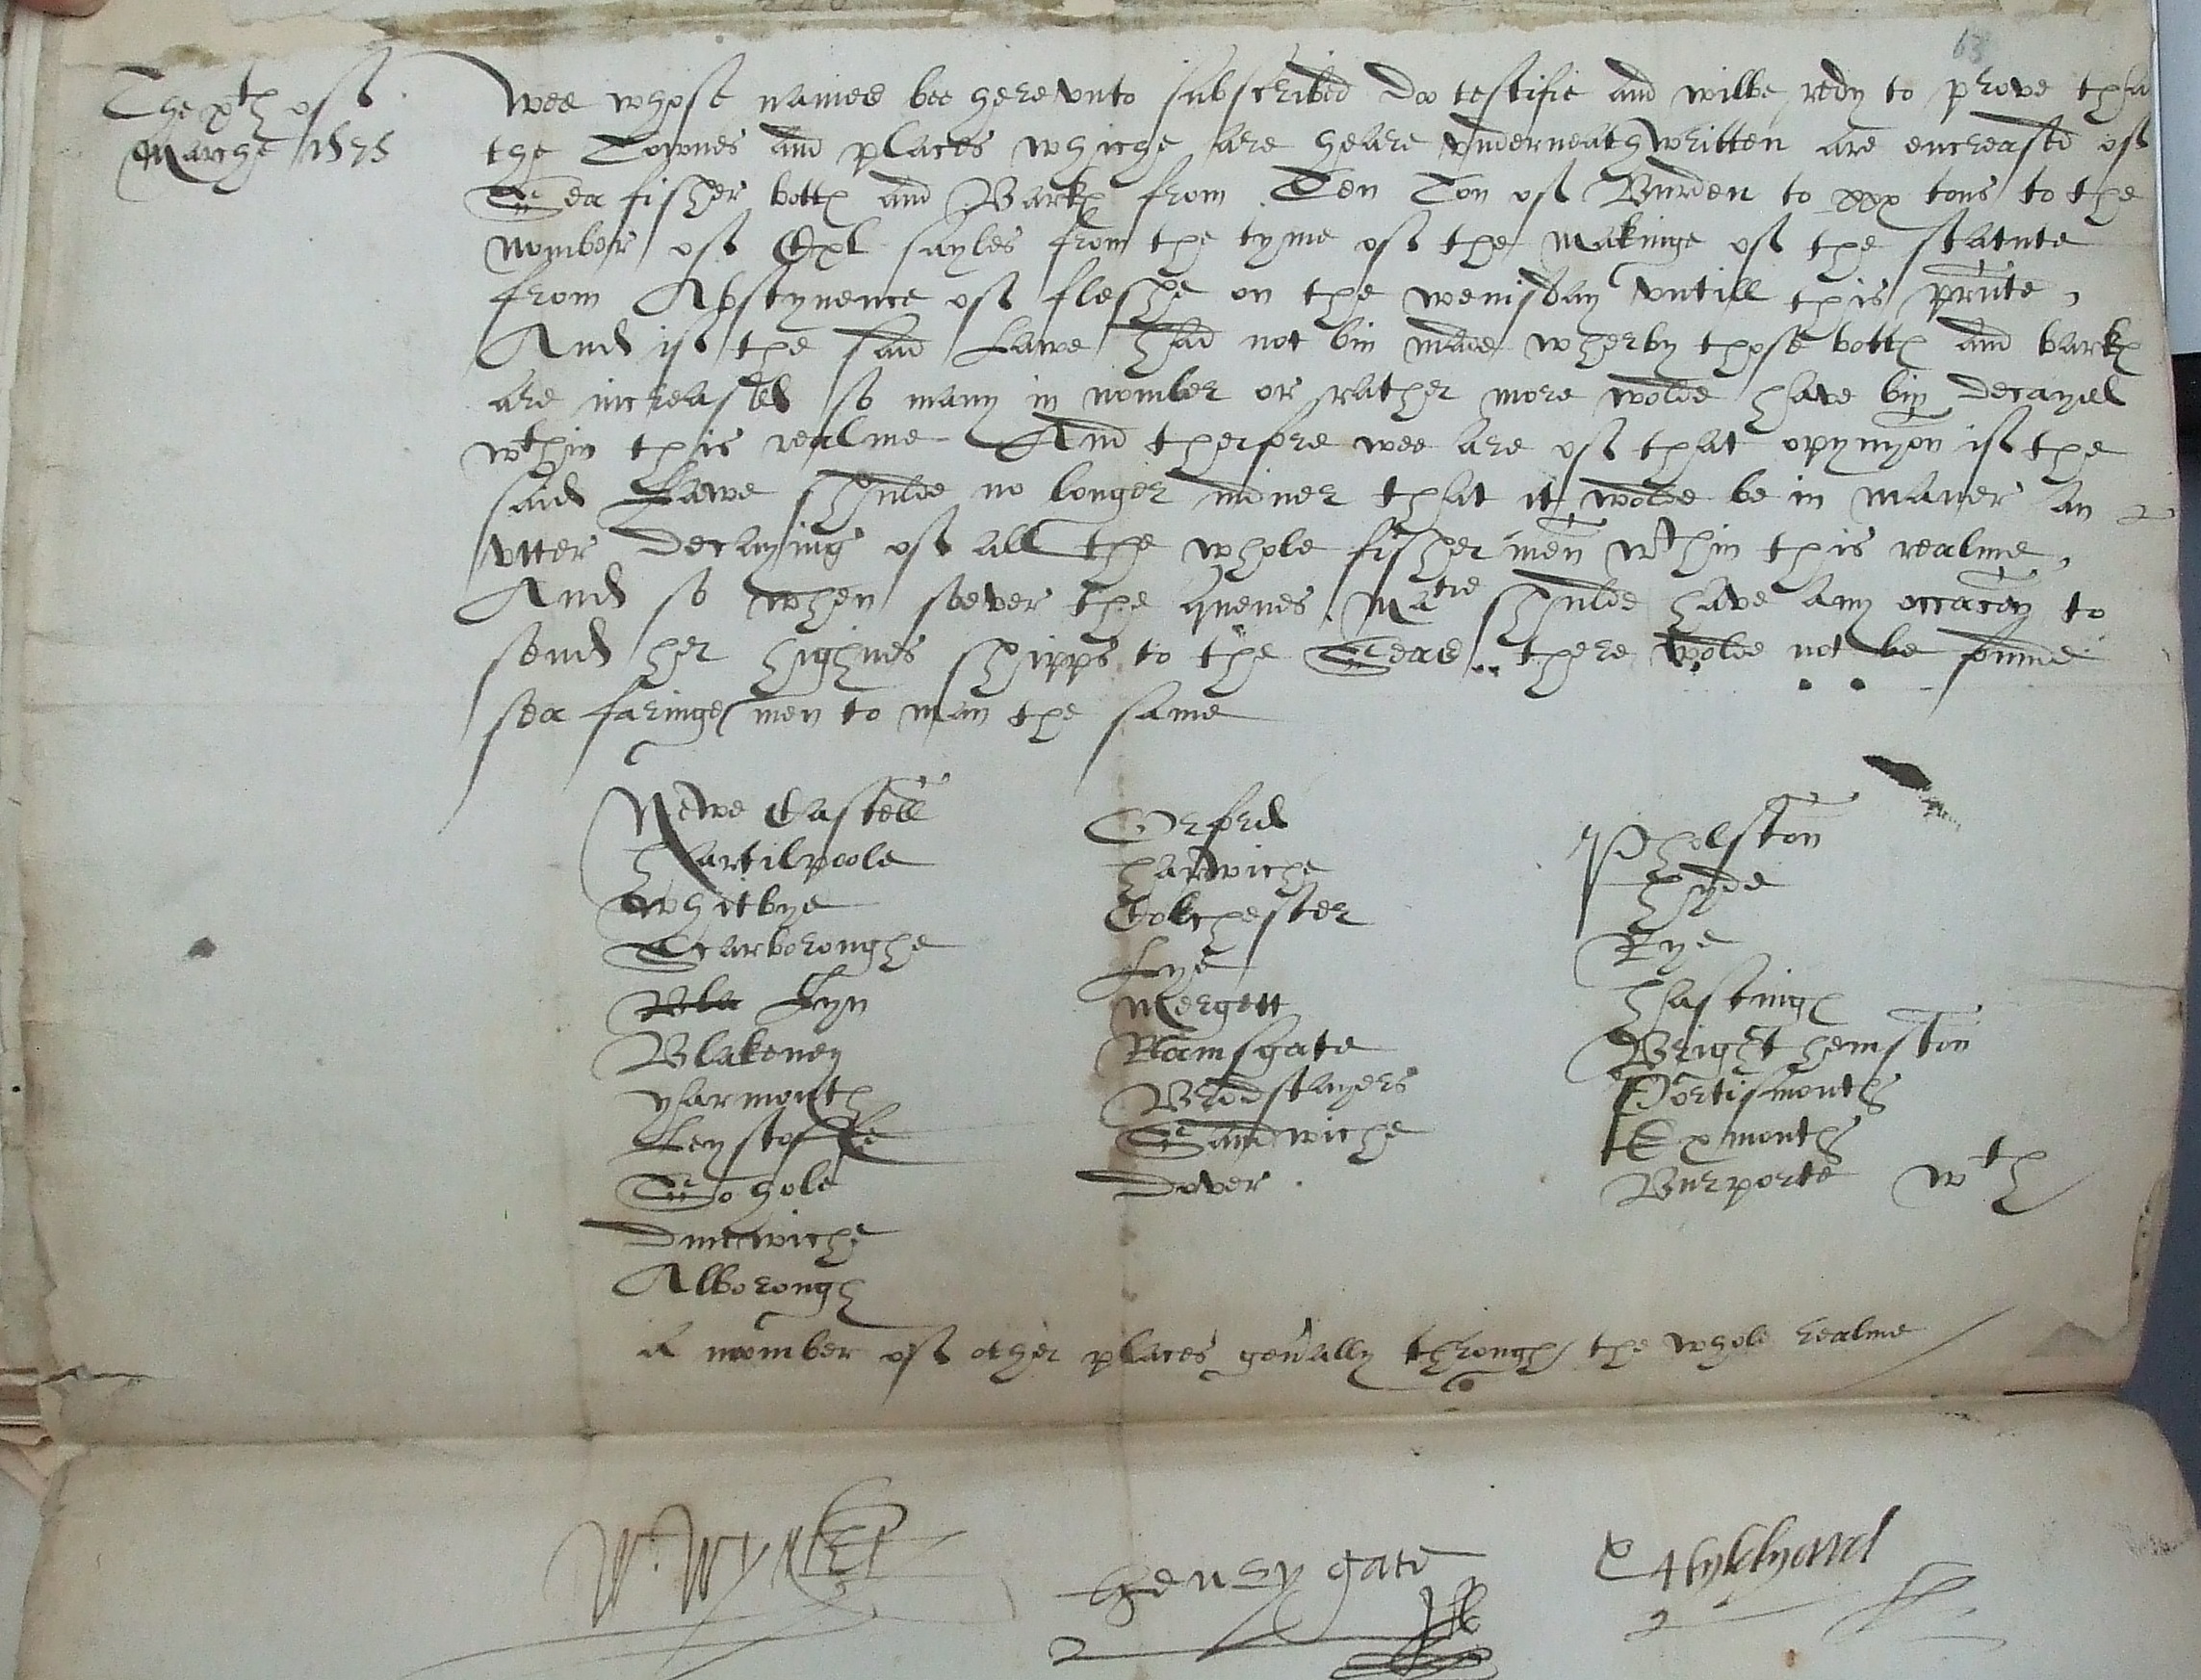 63
The xth of
Marche 1575
Wee whose names bee herevnto subscribed do testifie and wilbe redy to prove tha
the Townes and places whiche are heare vnderneath written are encreased of
Sea fisher botts and Barks from Ten Ton of Burden to xxx tons to the
nomber of Cxl sayles from the tyme of the makinge of the statute
from Abstynence of fleshe on the wenisday vntill this prnte,
And if the said Lawe had not bin made wherby those botts and barks
are increased so many in nomber or rather more wolde have bin decayed
wthin this realme And therfore wee are of that opynyon if the
said Lawe shulde no longer that it wolde be in maner an
vtter decaying of all the whole fisher men wthin this realme,
And so when soever the quenes Matie shulde have any occacon to
send her highnes shipps to the Seas there wolde not be founde
sea faringe men to man the same
Newe Castell
Hartilpoole
Whitbye
Scarboroughe
Bla Lyn
Blakeney
Yarmouth
Leystoffe
So hole
Dunwiche
Alborough
Orford
Harwiche
Colchester
Lye
Mergett
Ramsgate
Brodstayers
Sandwiche
Dover
Hyde
Rye
Hastings
Bright hemston
Portismouth
Exmouth
Burporte wth
a nomber of other places genally through the whole realme
Henry gate